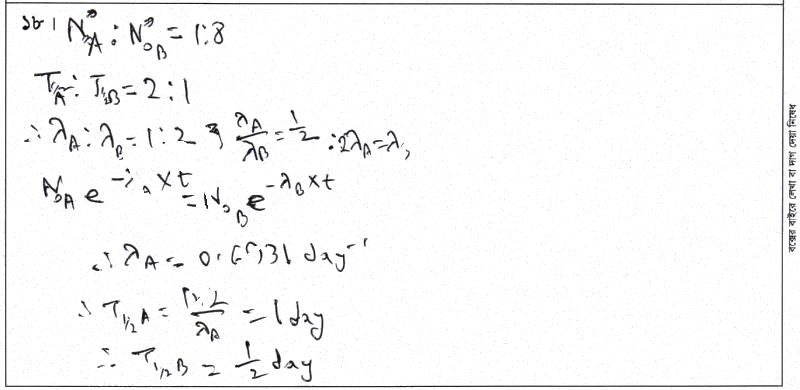 ১৮। N₀A : N₀B = 1:8
T½A : T½B = 2:1
∴ λA : λB = 1:2 ⇒ λA/λB = 1/2 ∴ 2λA = λB
N₀A e^(-λA × t) = N₀B e^(-λB × t)
∴ λA = 0.6931 day⁻¹
∴ T½A = ln 2/λA = 1 day
∴ T½B = 1/2 day
বক্সের বাইরে লেখা বা দাগ দেয়া নিষেধ